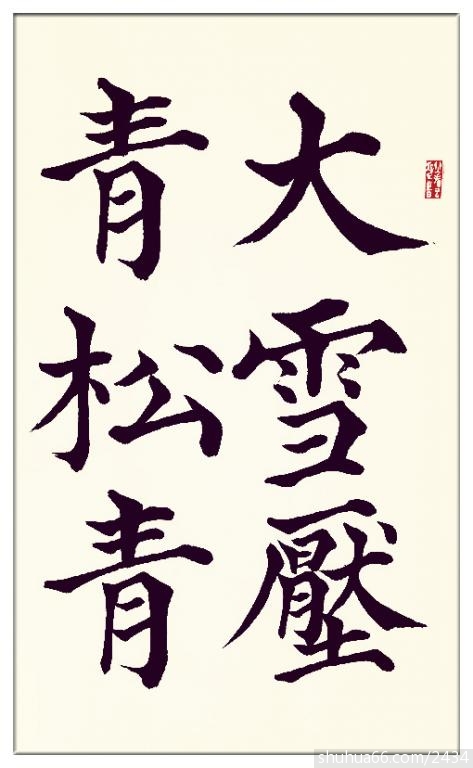 大雪壓
青松青
shuhua66.com/2434